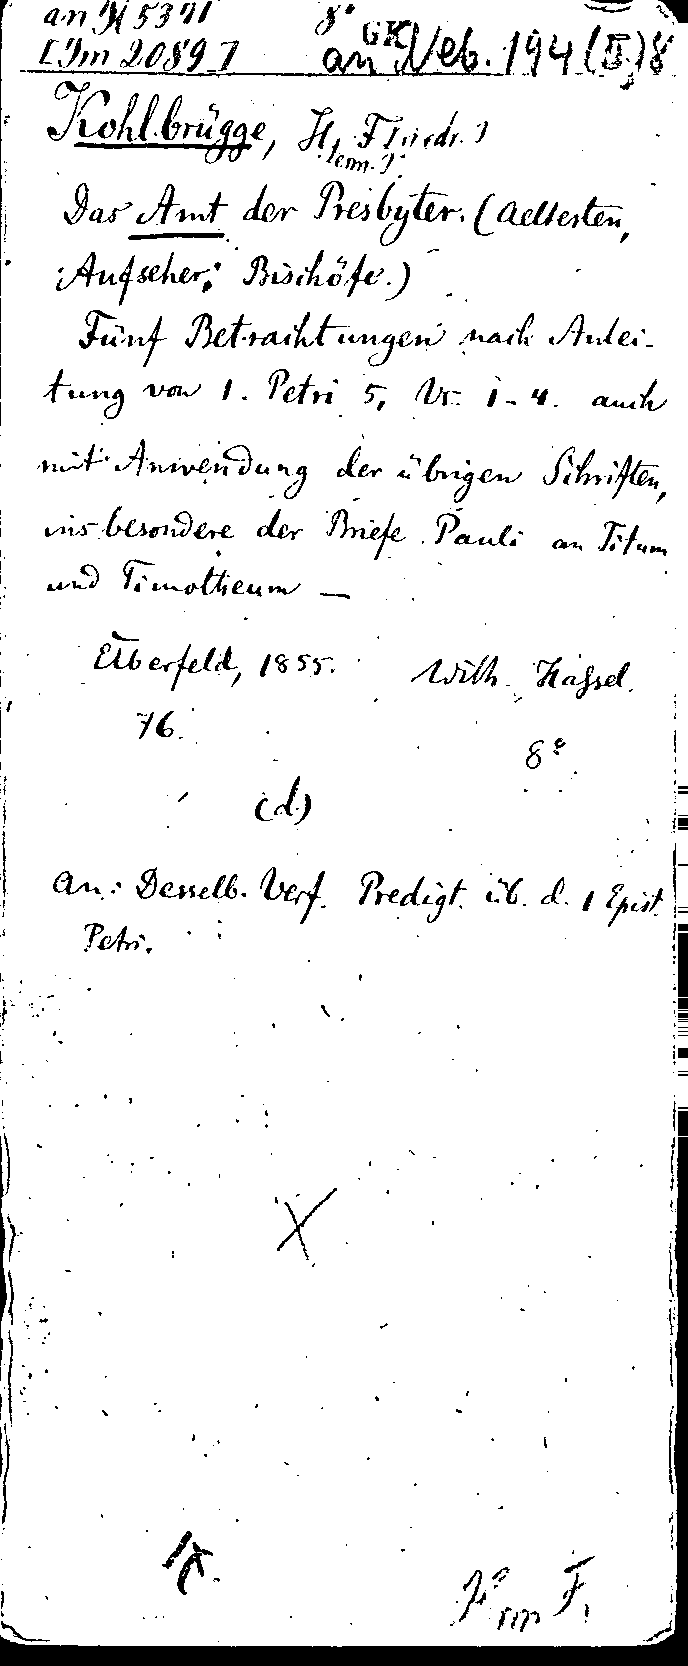 8°
[Im 20897]
an Neb. 194 (5,) 8
Kohlbrügge, H[erm.] F[riedr.]
Das Amt der Presbyter. (Aeltesten,
Aufseher, Bischöfe.)
Fünf Betrachtungen nach Anlei-
tung von 1. Petri 5, Vs. 1-4. auch
mit Anwendung der übrigen Schriften,
insbesondere der Briefe Pauli an Titum
und Timotheum —
Elberfeld, 1855. Wilh. Hassel.
76.
8°
(d.)
an: Desselb. Verf. Predigt. üb. d. 1 Epist.
Petri.